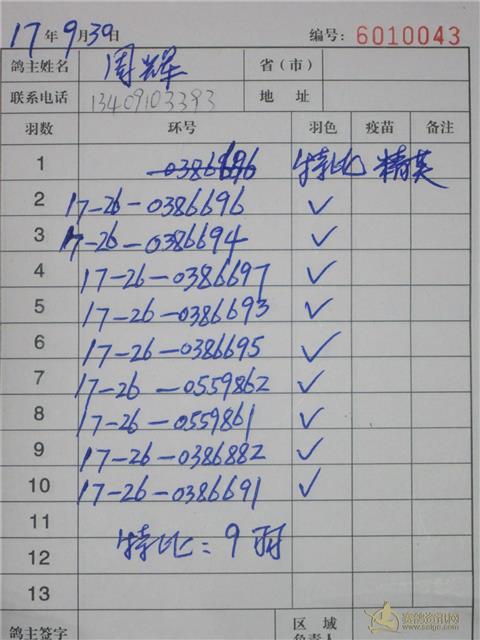 17年9月39日 编号: 6010043
鸽主姓名 周辉 省（市）
联系电话 13409103393 地址
羽数 环号 羽色 疫苗 备注
1 特比 精英
2 17-26-0386696 ✓
3 17-26-0386694 ✓
4 17-26-0386697 ✓
5 17-26-0386693 ✓
6 17-26-0386695 ✓
7 17-26-0559862 ✓
8 17-26-0559861 ✓
9 17-26-0386882 ✓
10 17-26-0386691 ✓
11
特比:9羽
12
13
鸽主签字 区域
负责人
赛鸽资讯网
www.saige.com